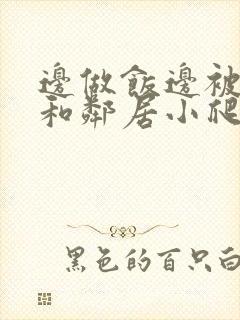 邊做飯邊被
和鄰居小爬
黑色的百只白